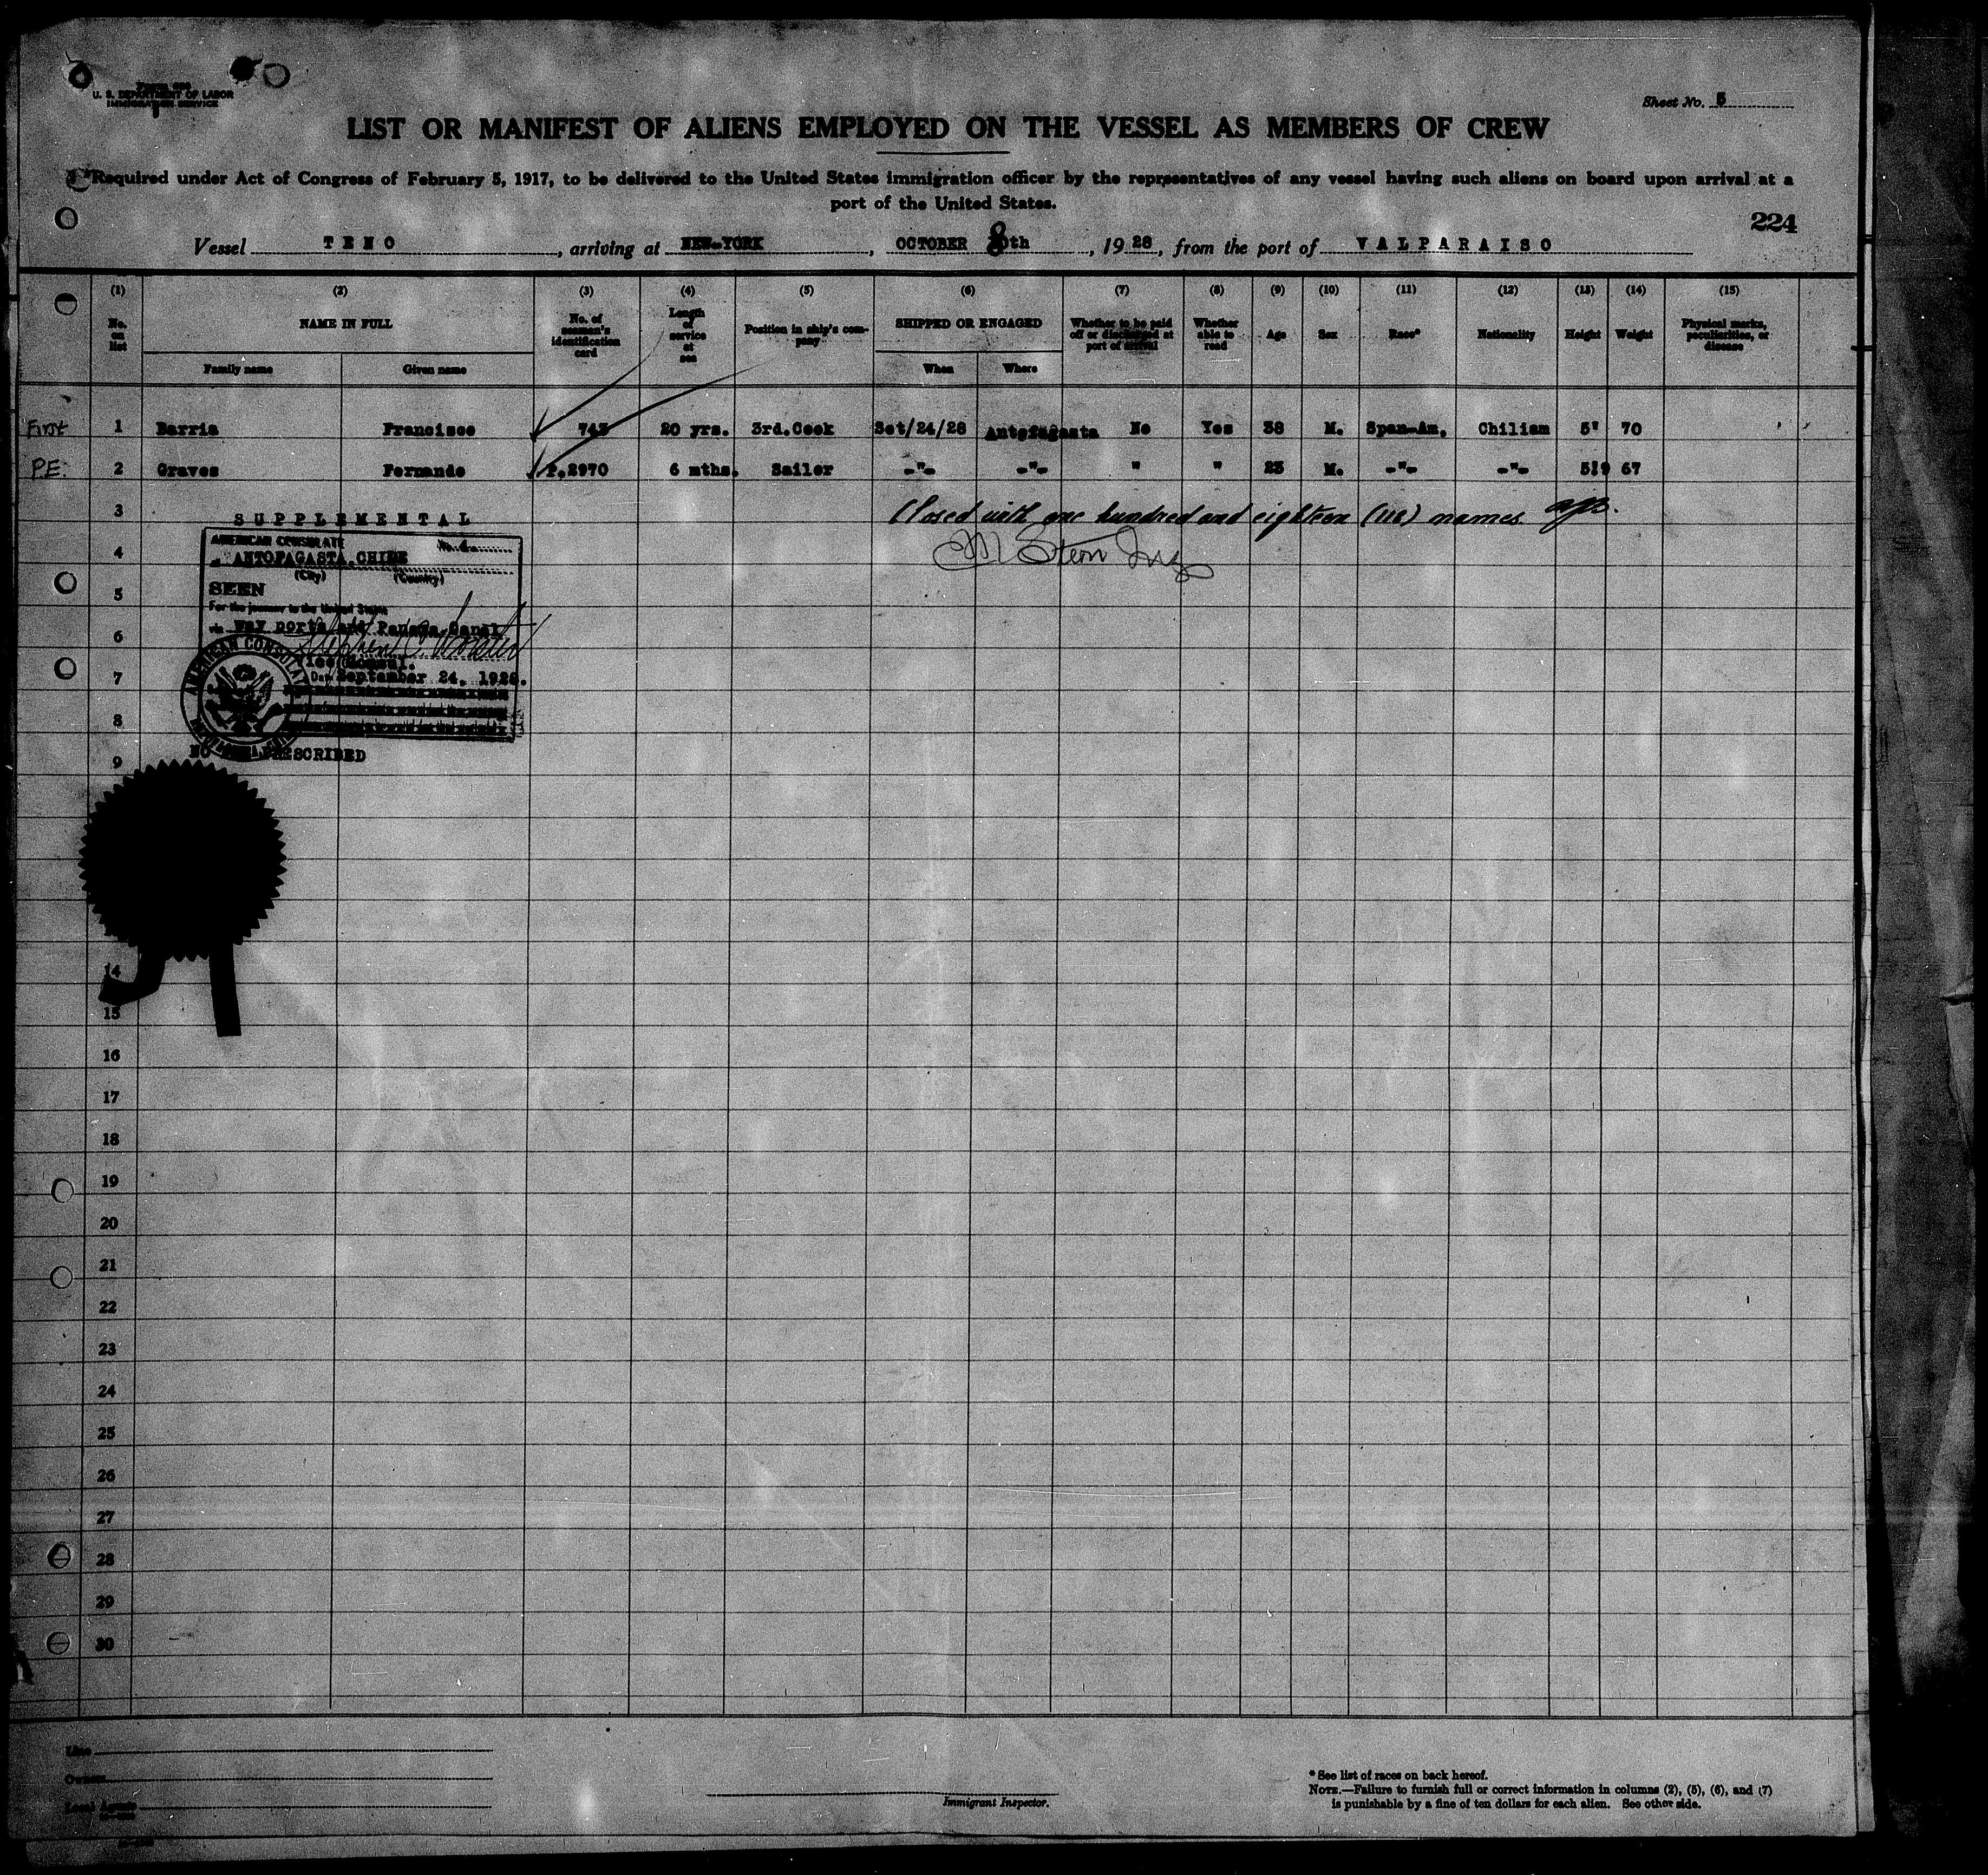 U. S. DEPARTMENT OF LABOR
IMMIGRATION SERVICE
Sheet No. 5
LIST OR MANIFEST OF ALIENS EMPLOYED ON THE VESSEL AS MEMBERS OF CREW
Required under Act of Congress of February 5, 1917, to be delivered to the United States immigration officer by the representatives of any vessel having such aliens on board upon arrival at a
port of the United States.
224
Vessel TENO, arriving at NEW-YORK, OCTOBER 8th, 1928, from the port of VALPARAISO
(1) (2) (3) (4) (5) (6) (7) (8) (9) (10) (11) (12) (13) (14) (15)
No. on list NAME IN FULL No. of seaman's identification card Length of service at sea Position in ship's company SHIPPED OR ENGAGED Whether to be paid off or discharged at port of arrival Whether able to read Age Sex Race* Nationality Height Weight Physical marks, peculiarities, or disease
Family name Given name When Where
First 1 Barria Francisco 743 20 yrs. 3rd.Cook Set/24/28 Antofagasta No Yes 38 M. Span-Am. Chilian 5' 70
P.E. 2 Graves Fernando P.2970 6 mths. Sailor -"- -"- " " 23 M. -"- -"- 5!9 67
3 Closed with one hundred and eighteen (118) names.
SUPPLEMENTAL
AMERICAN CONSULATE No.
4 at ANTOFAGASTA, CHILE M Stern Insp
(City) (Country)
5 SEEN
For the journey to the United States
6 via way ports and Panama Canal
Vice Consul.
7 Date September 24, 1928.
AMERICAN CONSULATE
8
NO PRESCRIBED
9
14
15
16
17
18
19
20
21
22
23
24
25
26
27
28
29
30
Line
Owner
Local Agents
Immigrant Inspector.
* See list of races on back hereof.
NOTE.—Failure to furnish full or correct information in columns (2), (5), (6), and (7)
is punishable by a fine of ten dollars for each alien. See other side.